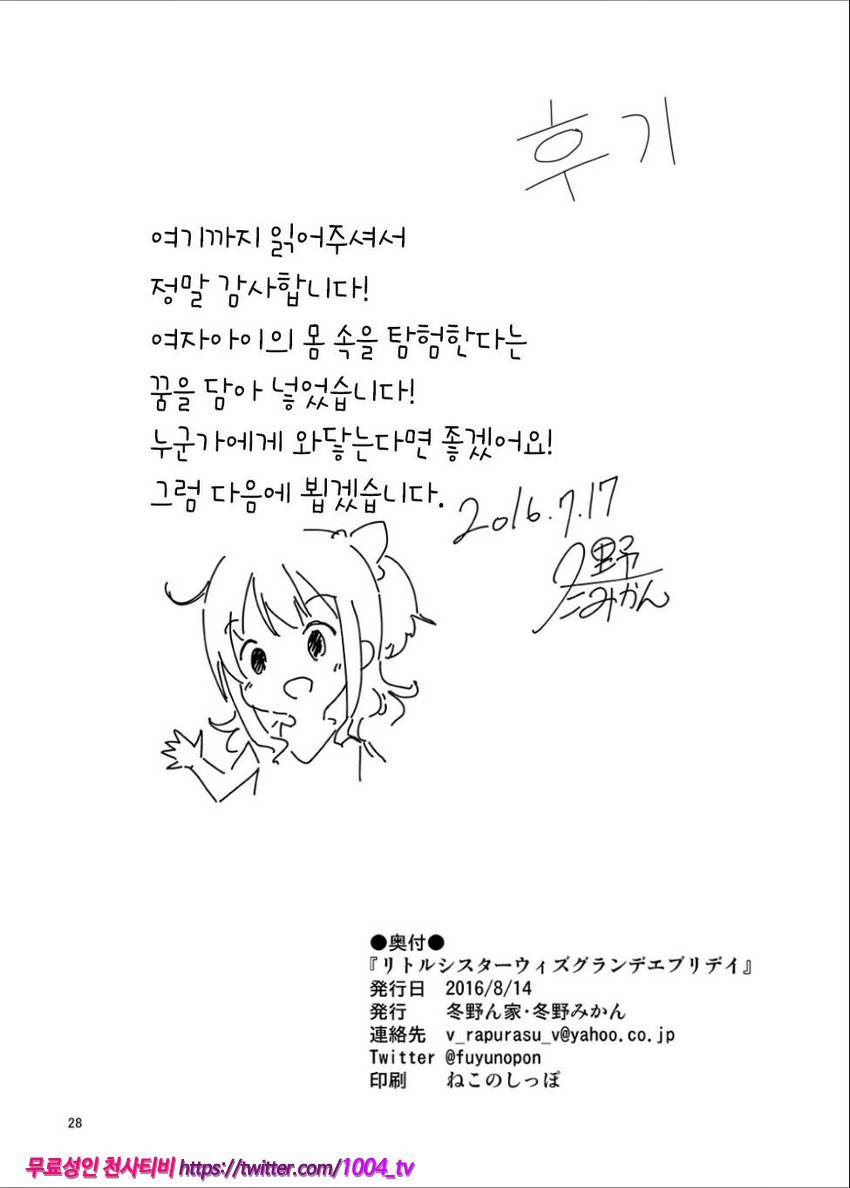 후기
여기까지 읽어주셔서
정말 감사합니다!
여자아이의 몸 속을 탐험한다는
꿈을 담아 넣었습니다!
누군가에게 와닿는다면 좋겠어요!
그럼 다음에 뵙겠습니다.
2016.7.17
冬野
みかん
●奥付●
『リトルシスターウィズグランデエブリデイ』
発行日 2016/8/14
発行 冬野ん家・冬野みかん
連絡先 v_rapurasu_v@yahoo.co.jp
Twitter @fuyunopon
印刷 ねこのしっぽ
28
무료성인 천사티비 https://twitter.com/1004_tv